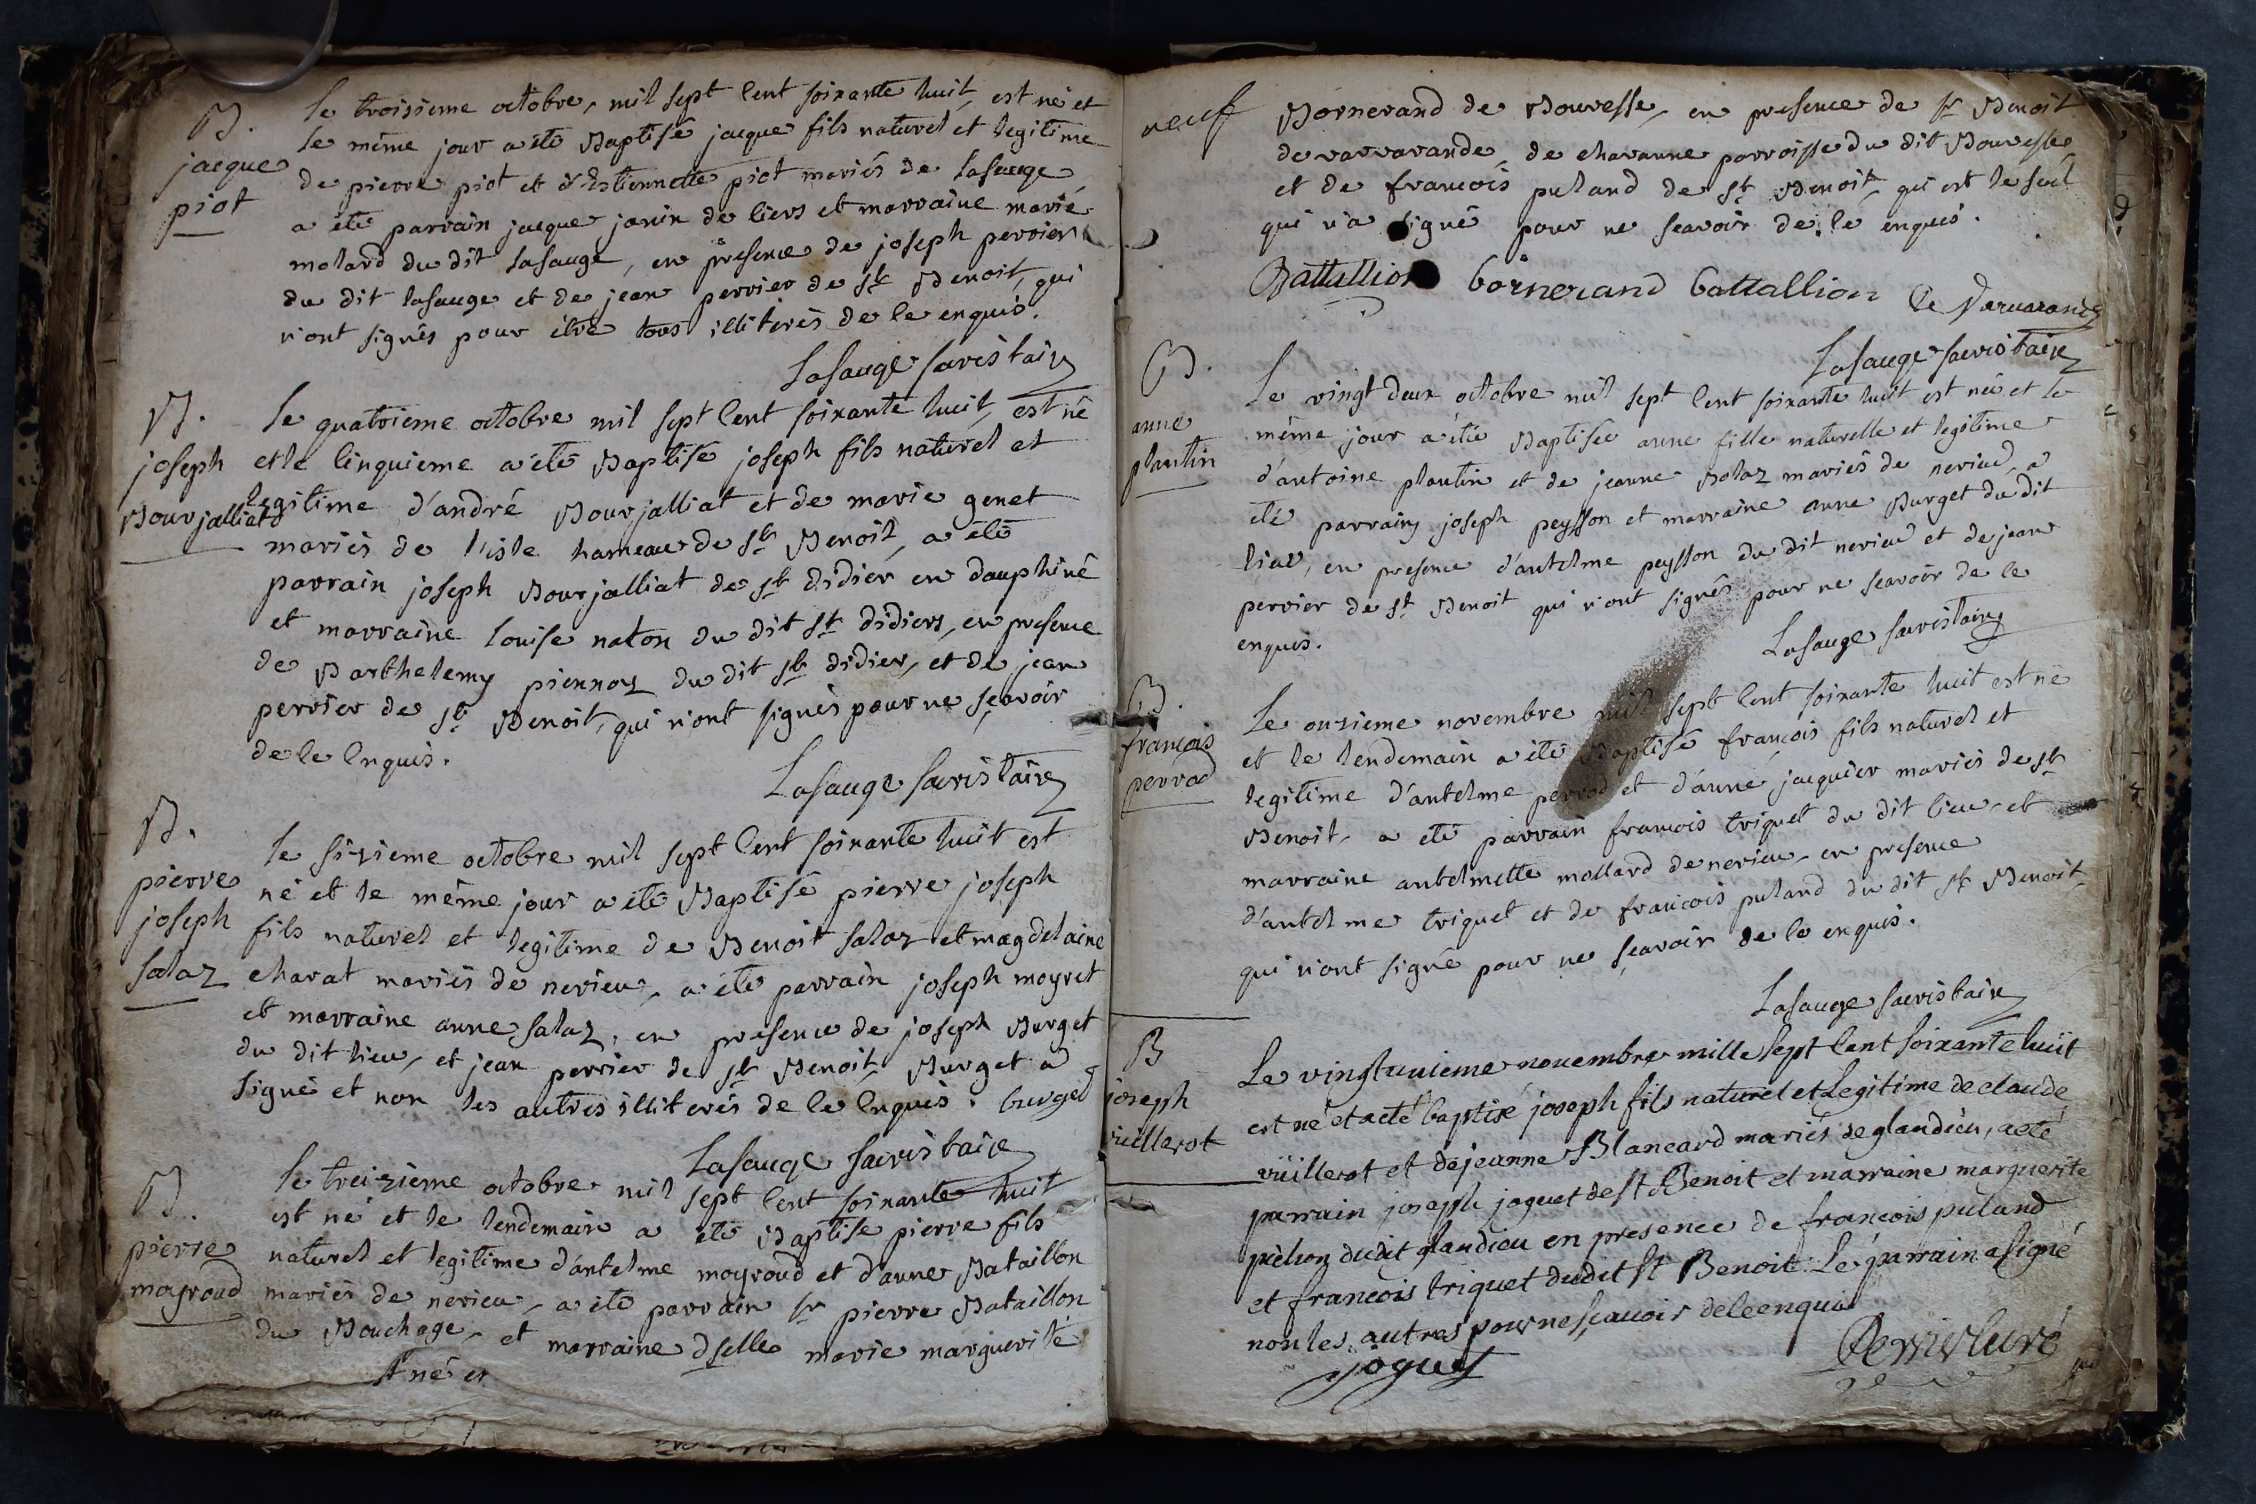 B.
jacque
piot
le troisieme octobre, mil sept Cent soixante huit, est né et
le même jour a été Baptisé jacque fils naturel et legitime
de pierre piot et d'Estiennette piot mariés de lasauge
a été parrain jacque janin de liers et marraine marie
molard du dit lasauge, en presence de joseph perrier
du dit lasauge et de jean perrier de st Benoit, qui
n'ont signés pour être tous illiterés de le enquis.
Lasauge sacristain
B.
joseph
Bourjalliat
le quatrieme octobre mil sept Cent soixante huit, est né
et le Cinquieme a été Baptisé joseph fils naturel et
legitime d'andré Bourjalliat et de marie genet
mariés de l'isle hameau de st Benoit, a été
parrain joseph Bourjalliat de st didier en dauphiné
et marraine louise naton du dit st didiers, en presence
de Barthelemy piennoz du dit st didier, et de jean
perrier de st Benoit, qui n'ont signés pour ne sçavoir
de le Enquis.
Lasauge sacristain
B.
pierre
joseph
salaz
le sizieme octobre mil sept Cent soixante huit est
né et le même jour a été Baptisé pierre joseph
fils naturel et legitime de Benoit salaz et magdelaine
charat mariés de nerieu, a été parrain joseph moyret
et marraine anne salaz, en presence de joseph Burget
du dit lieu, et jean perrier de st Benoit, Burget a
signé et non les autres illiterés de le Enquis. burget
Lasauge sacristain
B.
pierre
moyroud
le treizieme octobre mil sept Cent soixante huit
est né et le lendemain a été Baptisé pierre fils
naturel et legitime d'antelme moyroud et d'anne Bataillon
mariés de nerieu, a été parrain sr pierre Bataillon
du Bouchage, et marraine dselle marie marguerite
st né et
neuf
Bornerand de Bouvesse, en presence de sr Benoit
devarvarande, de chavanne parroisse du dit Bouvesse
et de francois puland de st Benoit, qui est le seul
qui n'a signé pour ne sçavoir de le enquis.
Battallion bornerand battallion De Varvarande
Lasauge sacristain
B.
anne
plantin
Le vingt deux octobre mil sept Cent soixante huit est née et le
même jour a été Baptisée anne fille naturelle et legitime
d'antoine plantin et de jeanne Bolaz mariés de nerieu, a
été parrain joseph peysson et marraine anne Burget du dit
lieu, en presence d'antelme peysson du dit nerieu et de jean
perrier de st Benoit qui n'ont signés pour ne sçavoir de le
enquis.
Lasauge sacristain
B.
francois
perrod
Le onzieme novembre mil sept Cent soixante huit est né
et le lendemain a été Baptisé francois fils naturel et
legitime d'antelme perrod et d'anne jacquier mariés de st
Benoit, a été parrain francois triquet du dit lieu et
marraine antelmette mollard de nerieu, en presence
d'antelme triquet et de francois puland du dit st Benoit,
qui n'ont signé pour ne sçavoir de le enquis.
Lasauge sacristain
B
joseph
vuillerot
Le vingtunieme novembre mille sept Cent soixante huit
est né et a eté baptisé joseph fils naturel et Legitime de claude
vüillerot et de jeanne Blancard mariés de glandieu, a eté
parrain joseph joguet de st Benoit et marraine marguerite
pichon dudit glandieu en presence de francois puland
et francois triquet dudit st Benoit. Le parrain a signé
non les autres pour ne sçauoir de le enquis
joguet
Perrier Curé